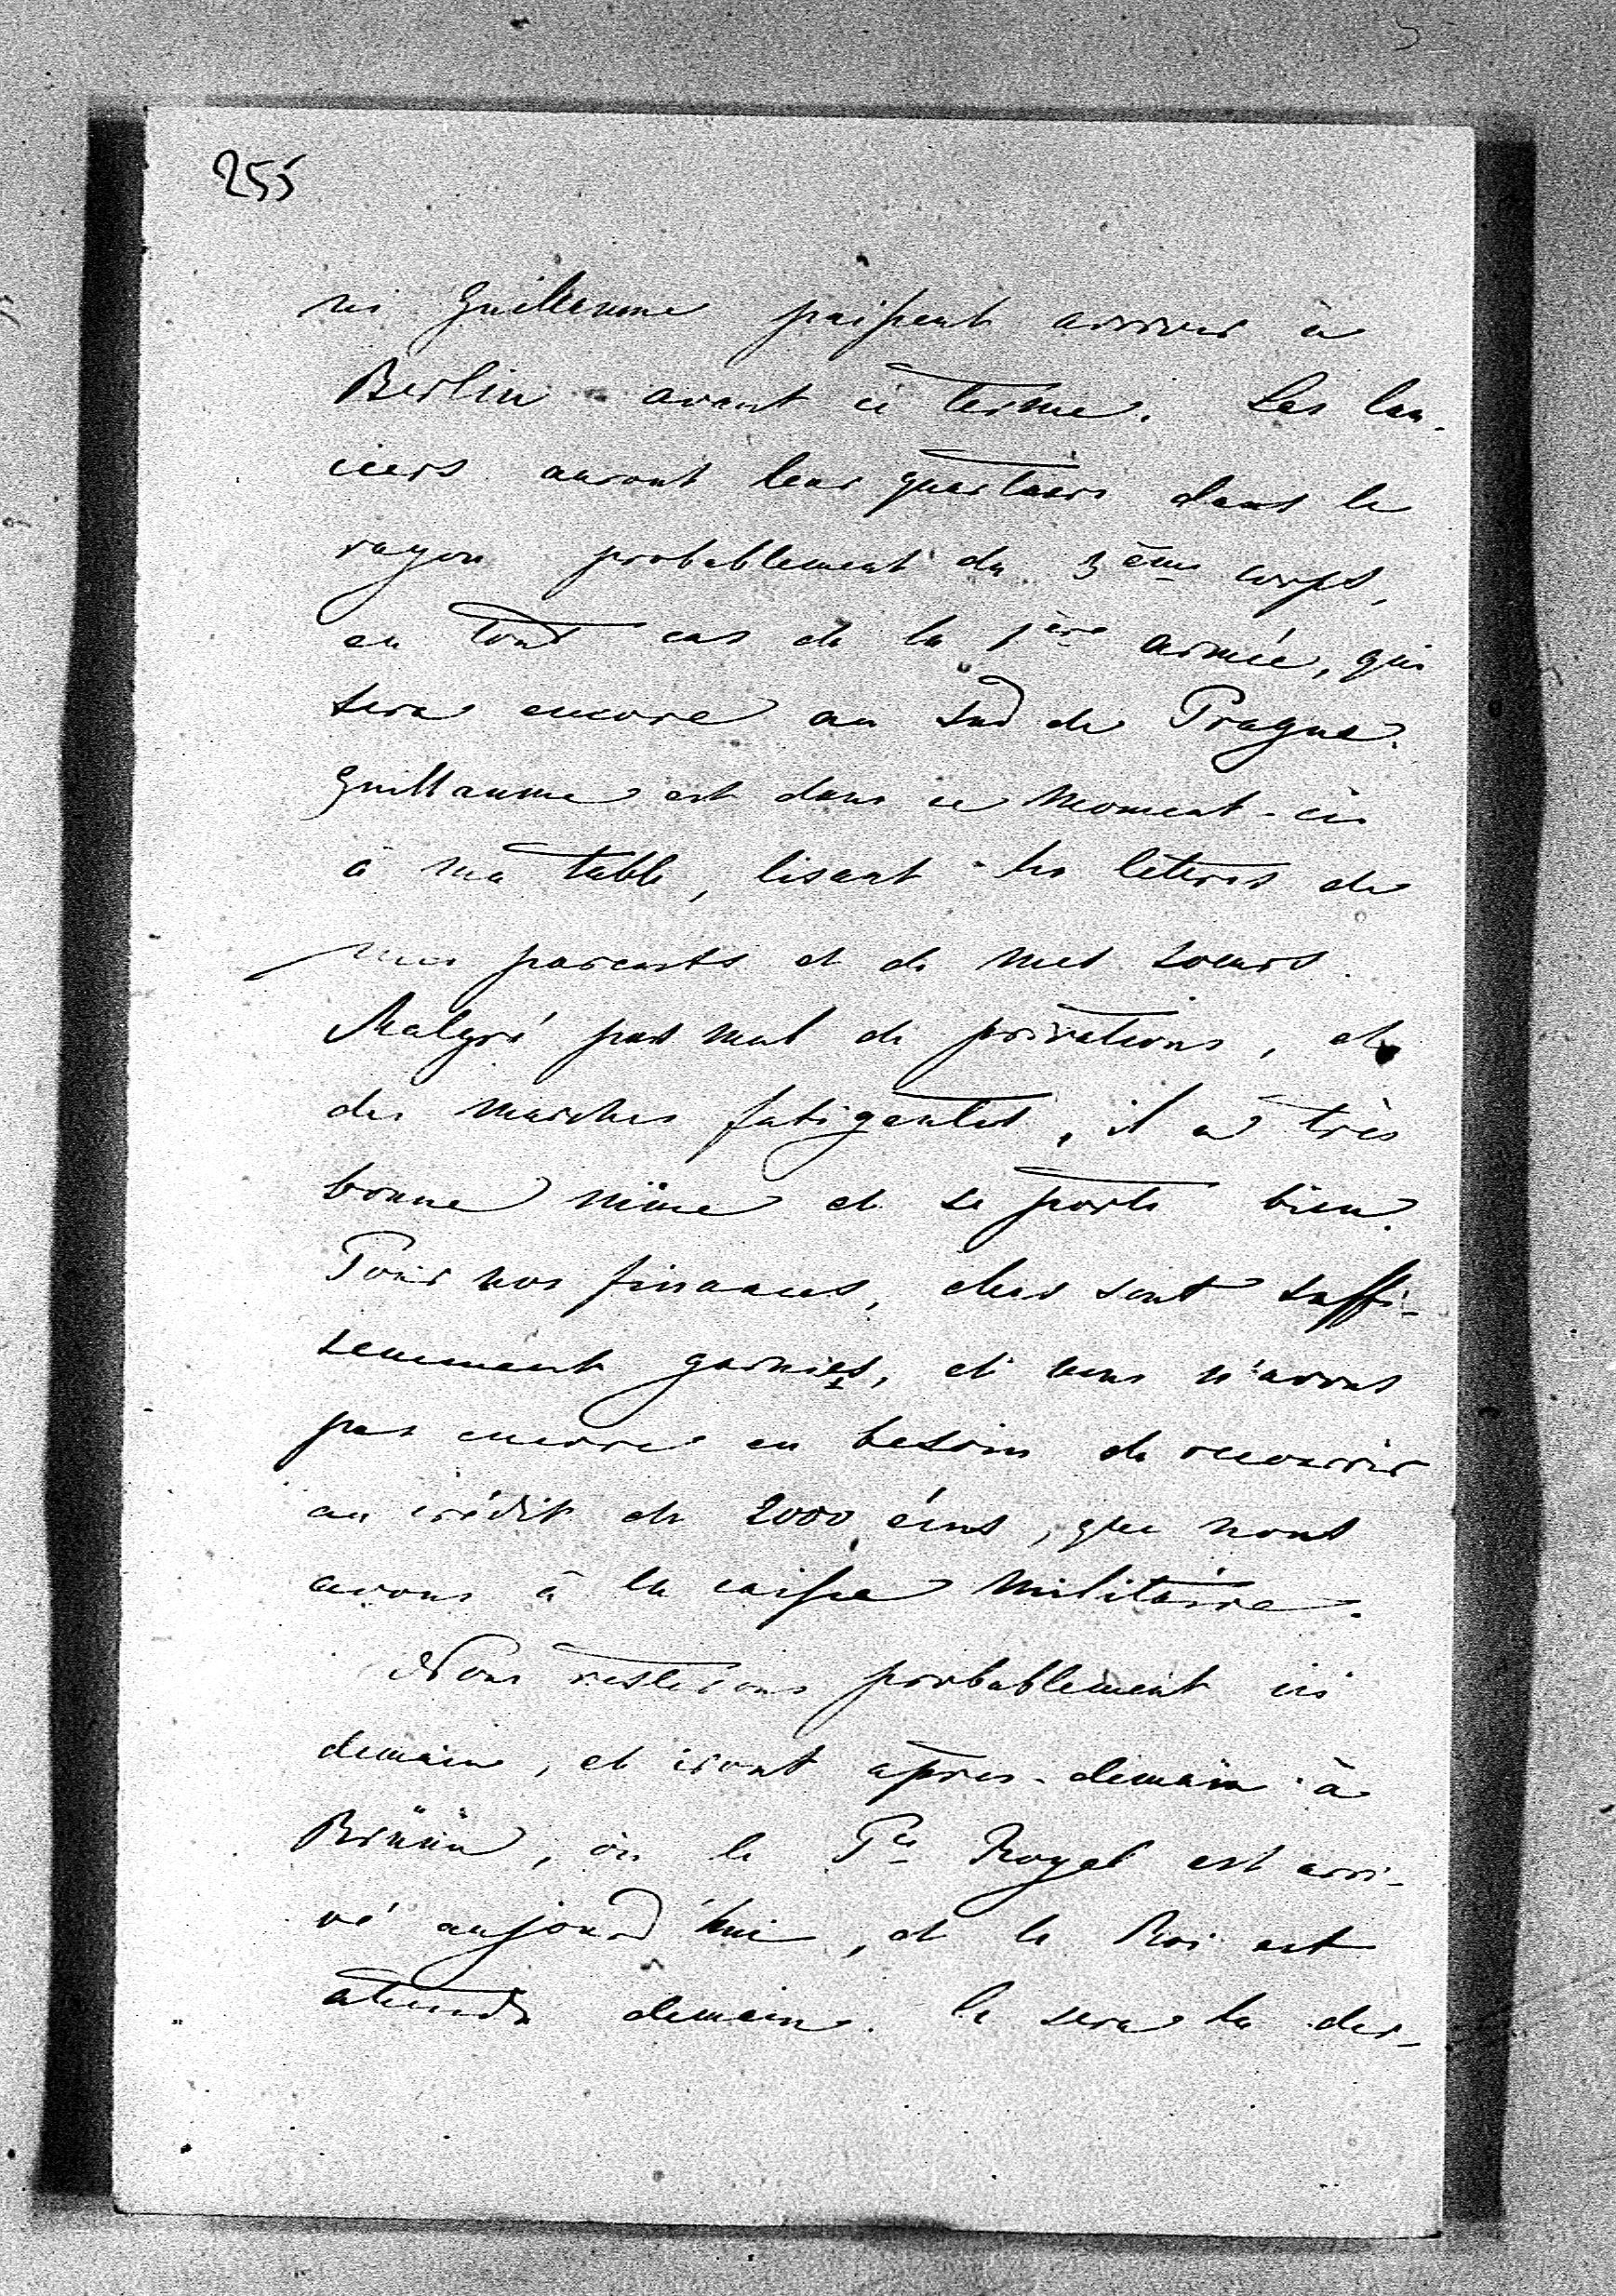 255
ni Guillaume puissent arriver à
Berlin avant ce terme. Les lan-
ciers auront leur quartiers dans le
rayon probablement du 3ème corps,
en tout cas de la 1ère armée, qui
sera encore au sud de Prague.
Guillaume est dans ce moment-ci
à ma table, lisant les lettres de
mes parents et de mes soeurs.
Malgré pas mal de privations, et
des marches fatigantes, il a très
bonne mine et se porte bien.
Pour nos finances, elles sont suffi-
semment garnies, et nous n'avons
pas encore eu besoin de recourrir
au crédit de 2000 écus, que nous
avons à la caisse militaire.
Nous resterons probablement ici
demain, et iront après-demain à
Brünn, où le Pce Royal est arri-
vé aujourd'hui, et le Roi est
attendu demain. Ce sera la der-